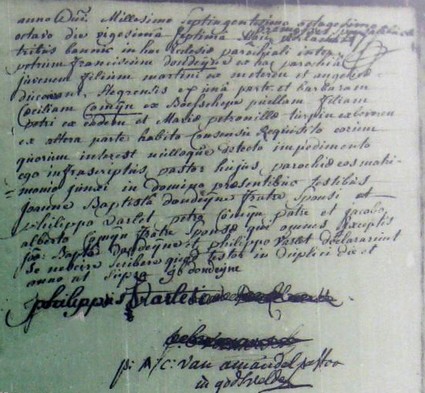 anno Dni. Millesimo Septingentesimo octogesimo
octavo die vigesima septima
tribus bannis in hac Ecclesia parochiali inter
petrum franciscum dondeyne ex hac parochia
juvenem filium martini ex meteren et angelæ
ex unâ parte et barbaram
Ceciliam Comÿn ex Boeschepe puellam filiam
petri ex et Mariæ petronillæ turpin ex
ex altera parte habito Consensu Requisito eorum
quorum interest nulloque detecto impedimento
ego infrascriptus pastor hujus parochiæ eos matri=
=monio junxi in domino præsentibus testibus
Joanne Baptista dondeÿne fratre Sponsi et
philippo varlet petro Comÿn patre et Jacobo
alberto Comÿn fratre Sponsæ qui omnes exceptis
joe: Bapta dondeÿne et philippo varlet declararunt
Se nescire scribere quod testor in duplici die et
anno ut supra dondeÿne
philippus Varlet
p: A/C: van amandel pastor
in godsvelde